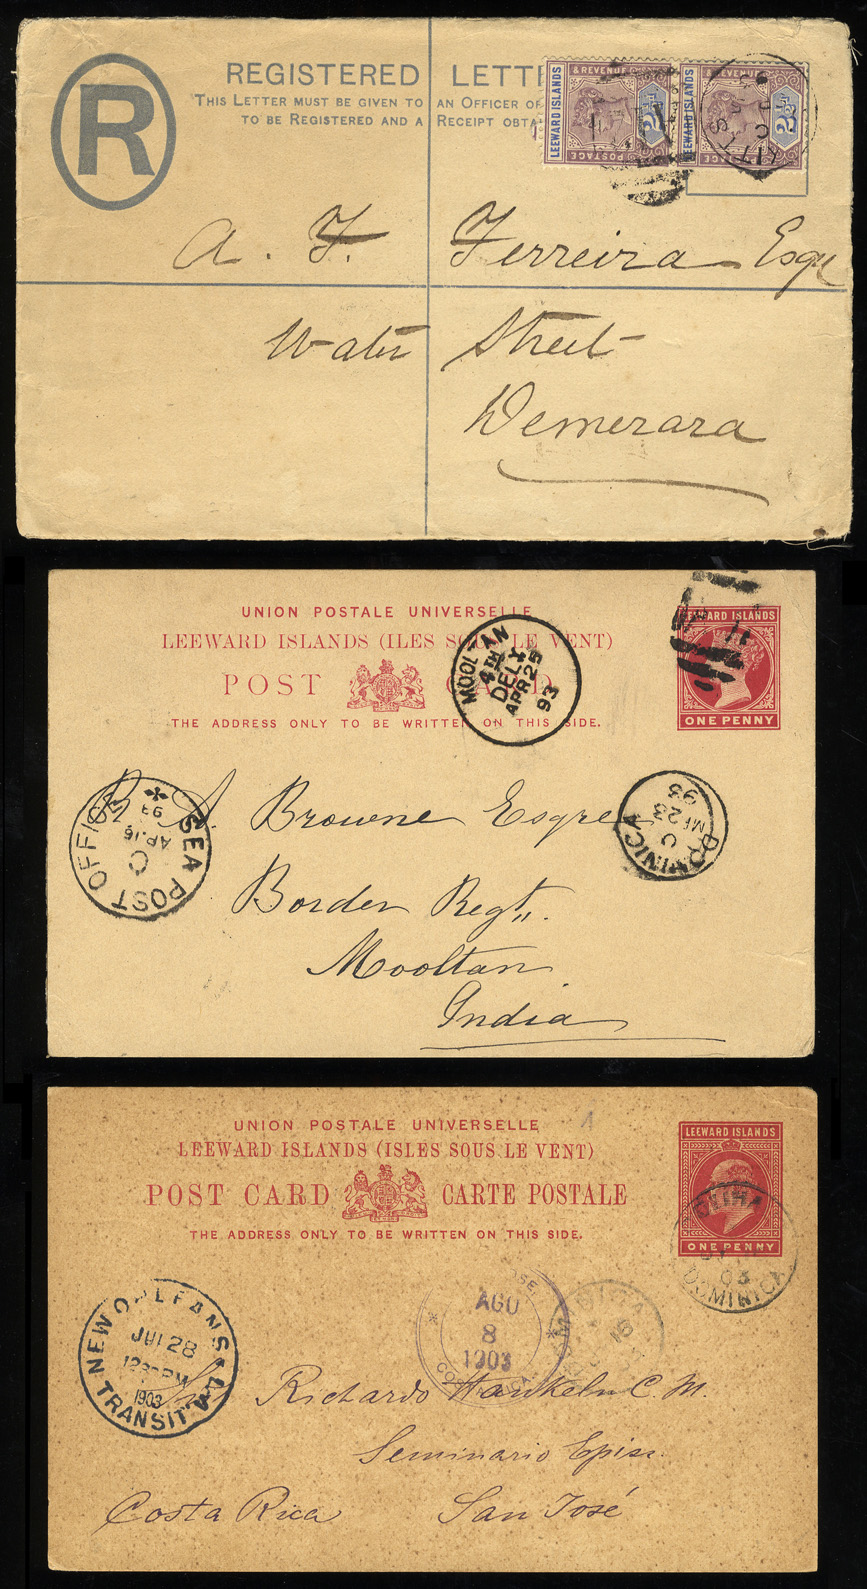 REGISTERED LETTE
THIS LETTER MUST BE GIVEN TO AN OFFICER OF
TO BE REGISTERED AND A RECEIPT OBTA
R
LEEWARD ISLANDS
& REVENUE
POSTAGE
2½
LEEWARD ISLANDS
& REVENUE
POSTAGE
2½
A. F. Ferreira Esqr
Water Street
Demerara
UNION POSTALE UNIVERSELLE
LEEWARD ISLANDS (ILES SOUS LE VENT)
POST CARD
THE ADDRESS ONLY TO BE WRITTEN ON THIS SIDE.
LEEWARD ISLANDS
ONE PENNY
MOOLTAN
4TH
DELY
APR 25
93
SEA POST OFFICE
C
AP.16
93
DOMINICA
C
23
93
B A Browne Esqre
Border Regt.
Mooltan
India
UNION POSTALE UNIVERSELLE
LEEWARD ISLANDS (ISLES SOUS LE VENT)
POST CARD CARTE POSTALE
THE ADDRESS ONLY TO BE WRITTEN ON THIS SIDE.
LEEWARD ISLANDS
ONE PENNY
03
DOMINICA
NEW ORLEANS, LA
JUL 28
1903
TRANSIT
AGO
8
1903
Richardo Hankeln C. M.
Seminario Episc.
Costa Rica San José